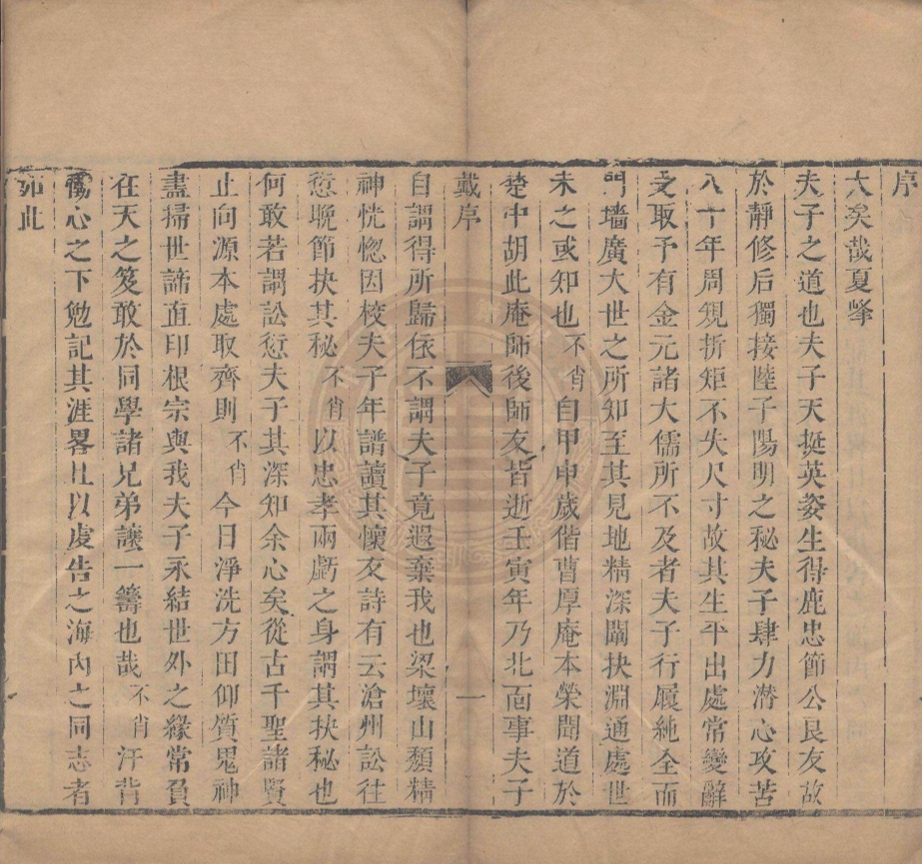 序
大矣哉夏峰
夫子之道也夫子天挺英姿生得鹿忠節公良友故
於靜修后獨接陸子陽明之秘夫子肆力潛心攻苦
八十年周規折矩不失尺寸故其生平出處常變辭
受取予有金元諸大儒所不及者夫子行履純全而
門墻廣大世之所知至其見地精深闡抉淵通處世
未之或知也不肖自甲申歲偕曹厚庵本榮聞道於
楚中胡此庵師後師友皆逝壬寅年乃北面事夫子
戴序
一
自謂得所歸依不謂夫子竟遐棄我也梁壞山頽精
神恍惚因校夫子年譜讀其懷友詩有云滄州訟往
愆晚節抉其秘不肖以忠孝兩虧之身謂其抉秘也
何敢若謂訟愆夫子其深知余心矣從古千聖諸賢
止向源本處取齊則不肖今日淨洗方田仰質鬼神
盡掃世諦直印根宗與我夫子永結世外之緣常負
在天之笈敢於同學諸兄弟讓一籌也哉不肖汗背
傷心之下勉記其涯畧且以虔告之海內之同志者